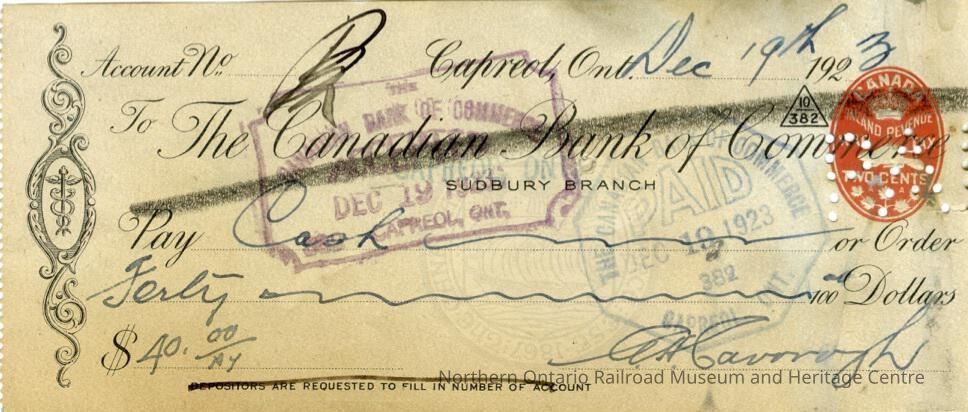 Account No. Capreol, Ont. Dec 19th 1923
10
382
To The Canadian Bank of Commerce
SUDBURY BRANCH
CANADA
INLAND REVENUE
TWO CENTS
THE
CANADIAN BANK OF COMMERCE
DEC 19
CAPREOL, ONT.
THE CANADIAN BANK OF COMMERCE
PAID
DEC 19 1923
382
CAPREOL ONT.
Pay Cash or Order
Forty 00/100 Dollars
$ 40.00
DEPOSITORS ARE REQUESTED TO FILL IN NUMBER OF ACCOUNT
Northern Ontario Railroad Museum and Heritage Centre